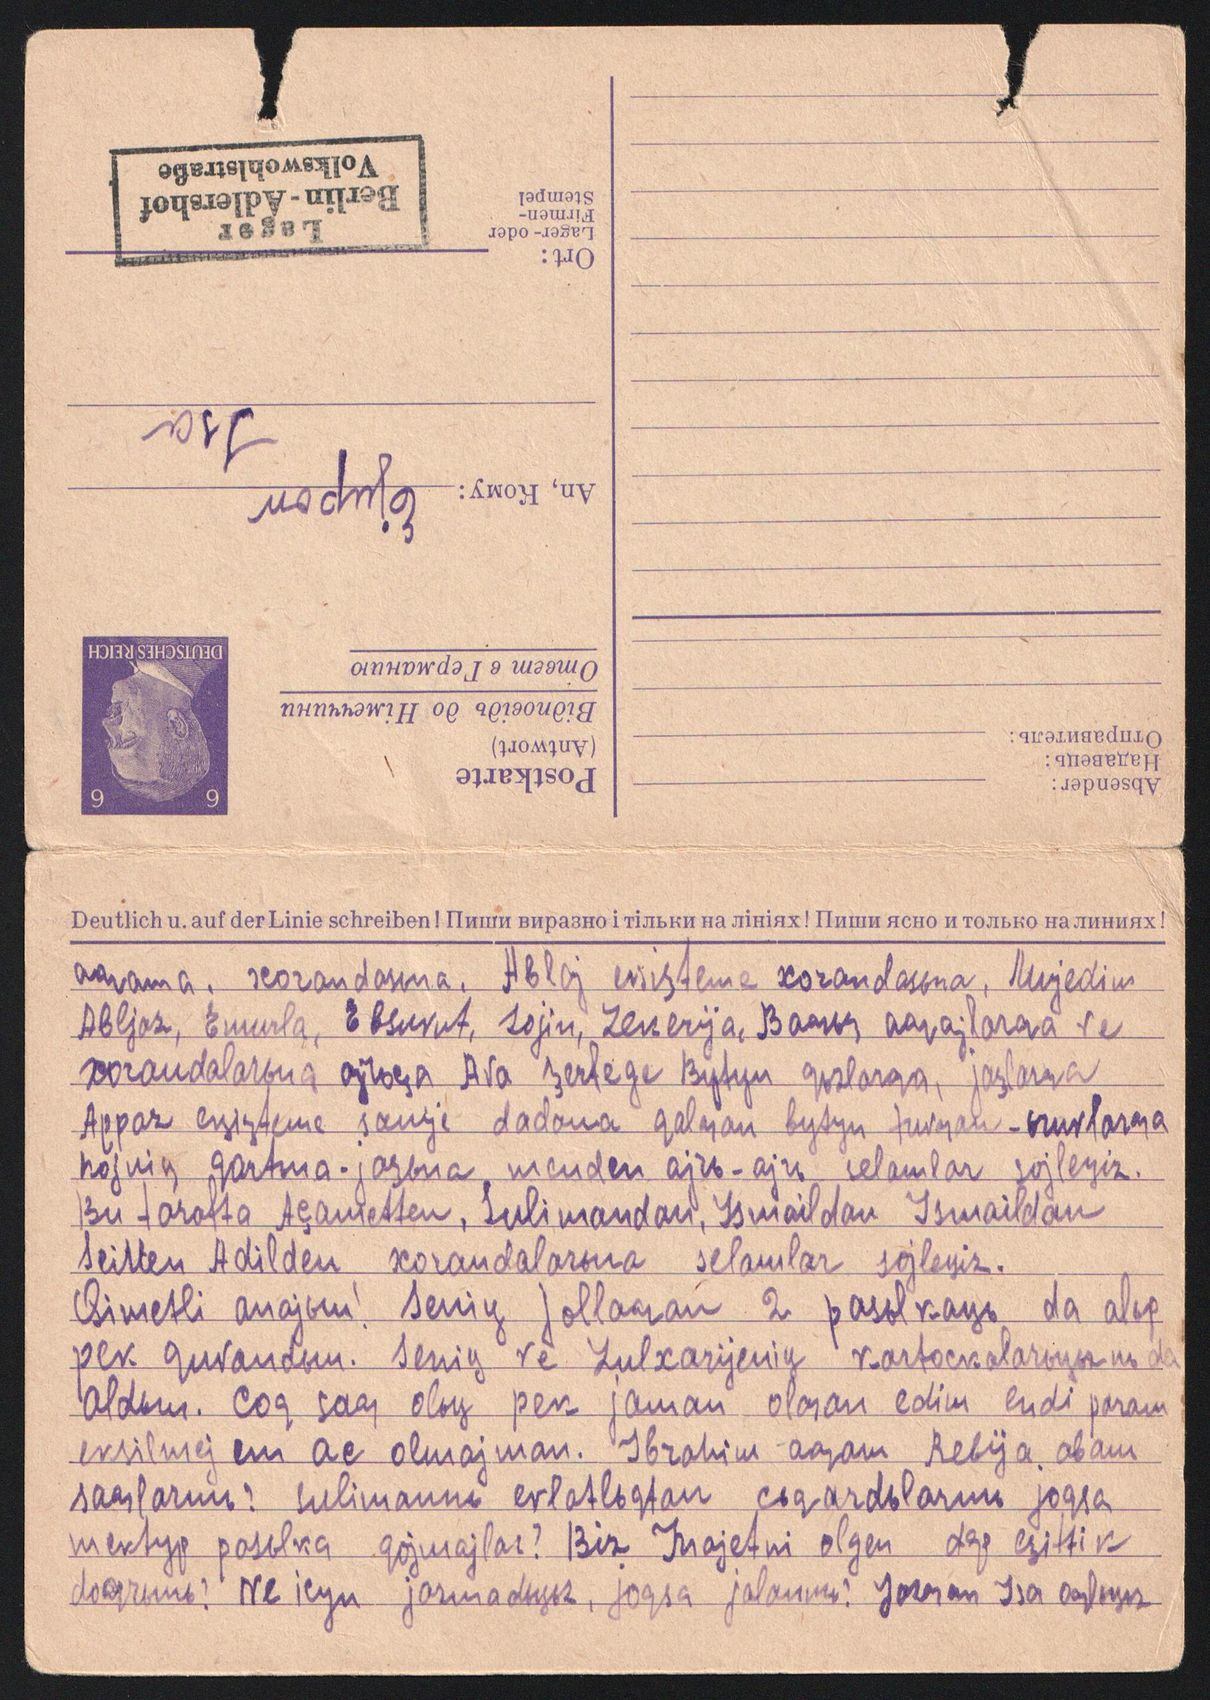 Lager
Berlin-Adlershof
Volkswohlstraße
Ort:
Lager- oder
Firmen-
Stempel
An, Кому:
Isa
Postkarte
(Antwort)
Відповідь до Німеччини
Ответ в Германию
6 6
DEUTSCHES REICH
Absender:
Надавець:
Отправитель:
Deutlich u. auf der Linie schreiben! Пиши виразно і тільки на лініях! Пиши ясно и только на линиях!
aƣama, xorandasьna, Ablaj enişteme xorandasьna, Mujedin
Abljaz, Emurla, Ebsuvut, Zekerija, aƣajlarƣa ve
xorandalarьna ajrьça Ava Bytyn qьzlarƣa, jaşlarƣa
Appaz enişteme dadama qalƣan bytyn tuvƣan-
kojniꞑ qartьna-jaşьna menden ajrь-ajrь selamlar sojleꞑiz.
Bu tarafta Açametten, Sulimandan, Ismaildan Ismaildan
Seitten Adilden xorandalarьna selamlar sojleꞑiz.
Qimetli anajьm! Seniꞑ jollaƣan 2 posьlkaꞑь da alьp
pek quvandьm. Seniꞑ ve Zulxarijeniꞑ kartockalarьꞑьznь da
aldьm. Coq saƣ olьꞑ pek jaman olƣan edim endi param
eksilmej em ac olmajman. Ibrahim aƣam Rebija abam
saƣlarmь? Sulimannь evlatlьqtan cьqardьlarmь joqsa
mektyp posьlka qojmajlar? Biz olgen dep eşittik
doƣrumь? Ne icyn jazmadьꞑьz, joqsa jalanmь? Jazƣan Isa oƣlьꞑьz